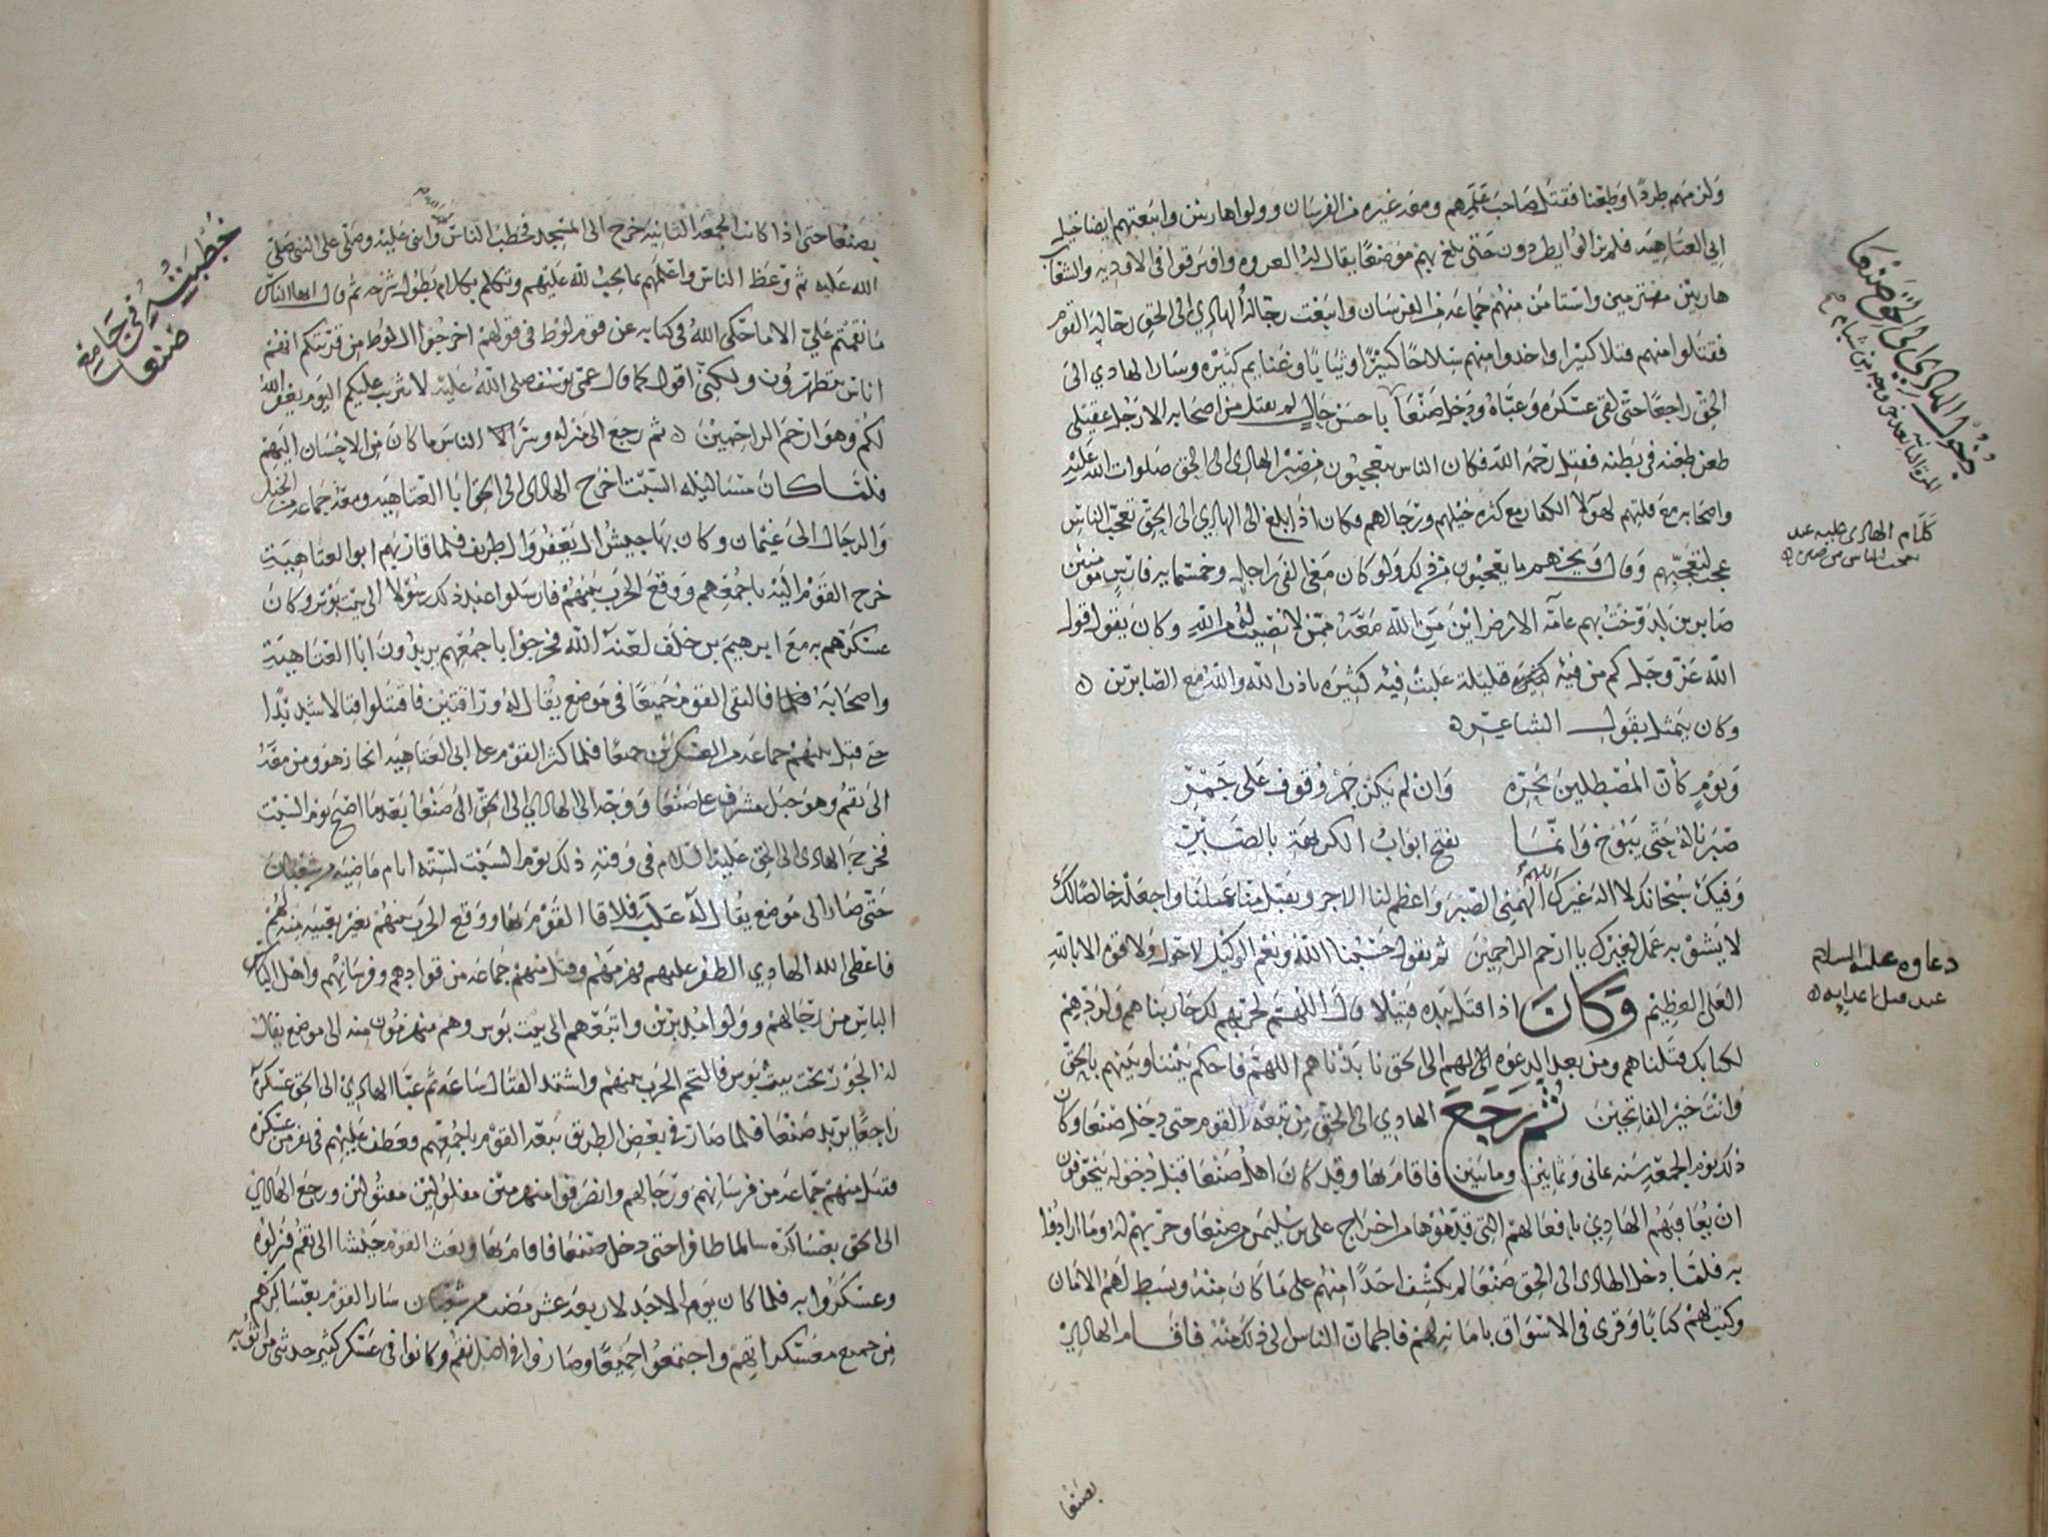 ولز منهم طردا وطعنا فقتل صاحب علمهم ومعه غيره من الفرسان وولوا هاربين واتبعتهم ايضا خيل
ابي العتاهيه فلم يزالوا يطردون حتى بلغ بهم موضعا يقال له العروه وافترقوا في الاوديه والشعاب
هاربين منهزمين واستامن منهم جماعه من الفرسان واتبعت رجاله الهادي الى الحق رجاله القوم
فقتلوا منهم قتلا كثيرا واخذوا منهم سلاحا كثيرا وثيابا وغنايم كثيره وسار الهادي الى
الحق راجعا حتى لقي عسكره وعباه ودخل صنعا باحسن حال لم يقتل من اصحابه الا رجل عقيلي
طعن طعنه في بطنه فقتل رحمه الله فكان الناس يتعجبون من صبر الهادي الى الحق صلوات الله عليه
واصحابه مع قلتهم لهولا الكفار مع كثره خيلهم ورجالهم وكان اذا بلغ الى الهادي الى الحق تعجب الناس
عجب لتعجبهم وقال ويحهم ما يعجبون من ذلك ولو كان معي الفي راجل وخمسمايه فارس مومنين
صابرين لدوخت بهم عامه الارض اين من الله معه ممن لا نصيب له من الله وكان يقول قول
الله عز وجل كم من فيه قليلة غلبت فيه كثيره باذن الله والله مع الصابرين ه
وكان يتمثل بقول الشاعر ه
ويوم كأن المصطلين بحره وان لم يكن جمر وقوف على جمر
صبرنا له حتى يبوخ وانما تفتح ابواب الكريهة بالصبر
وفيك سبحانك لا اله غيرك اللهم الهمني الصبر واعظم لنا الاجر وتقبل منا عملنا واجعله خالصا لك
لا يشوبه عمل لغيرك يا ارحم الراحمين ثم يقول حسبنا الله ونعم الوكيل لا حول ولا قوة الا بالله
العلي العظيم وكان اذا قتل بيده قتيلا قال اللهم لحربهم لك حاربناهم ولردهم
لكتابك قتلناهم ومن بعد الدعوه لهم الى الحق نابذناهم اللهم فاحكم بيننا وبينهم بالحق
وانت خير الفاتحين ثم رجع الهادي الى الحق من تبعه القوم حتى دخل صنعا وكان
ذلك يوم الجمعه سنه ثماني وثمانين وماتين فاقام بها وقد كان اهل صنعا قبل دخوله يتخوفون
ان يعاقبهم الهادي بافعالهم التي قدموها من اخراج علي بن سليمن من صنعا وحربهم له وما ارادوا
به فلما دخل الهادي الى الحق صنعا لم يكشف احدا منهم على ما كان منه وبسط لهم الامان
وكتب لهم كتابا وقرئ في الاسواق بامانهم فاطمان الناس الى ذلك منه فاقام الهادي
بصنعا
دخول الهادي الى الحق صنعا
المرة الثانيه بعد خروجه من شبام
كلام الهادي عليه عند
تعجب الناس من صبره ه
دعاوه عليه السلام
عند قتل اعدايه ه
بصنعا حتى اذا كانت الجمعة الثانيه خرج الى المسجد فخطب الناس واثنى عليه وصلى على النبي صلى
الله عليه ثم وعظ الناس واعلمهم بما يجب لله عليهم وتكلم بكلام يطول شرحه ثم قال ايها الناس
ما نقمتم علي الا ما حكى الله في كتابه عن قوم لوط في قولهم اخرجوا ال لوط من قريتكم انهم
اناس يتطهرون ولكني اقول كما قال عمي يوسف صلى الله عليه لا تثريب عليكم اليوم يغفر الله
لكم وهو ارحم الراحمين ه ثم رجع الى منزله وسر الناس ما كان من الاحسان اليهم
فلما كان مسا ليله السبت اخرج الهادي الى الحق ابا العتاهيه ومعه جماعه من الخيل
والرجال الى غيمان وكان بها جيش ال يعفر وال طريف فلما قاربهم ابو العتاهية
خرج القوم اليه باجمعهم ووقع الحرب بينهم فارسلوا عند ذلك رسولا الى بيت بوس وكان
عسكرهم به مع ابرهيم بن خلف لعنه الله فخرجوا باجمعهم يريدون ابا العتاهية
واصحابه فالتقى القوم جميعا في موضع يقال له فاقتتلوا قتالا شديدا
حتى قتل بينهم جماعه من العسكرين جميعا فلما كثر القوم على ابي العتاهيه انحاز هو ومن معه
الى نقم وهو جبل مشرف على صنعا ووجه الى الهادي الى الحق الى صنعا بعد ما اصبح يوم السبت
فخرج الهادي الى الحق عليه السلام في وقته ذلك يوم السبت لسته ايام ماضيه من شعبان
حتى صار الى موضع يقال له علب فلاقا القوم بها ووقع الحرب بينهم بغير تعبيه منه لهم
فاعطى الله الهادي الظفر عليهم فهزمهم وقتل منهم جماعه من قوادهم وفرسانهم واهل الباس
الباس من رجالهم وولوا مدبرين واتبعوهم الى بيت بوس وهم منهزمون منه الى موضع يقال
له تحت بيت بوس فالتحم الحرب بينهم واشتد القتال ساعه ثم عبا الهادي الى الحق عسكره
راجعا يريد صنعا فلما صار في بعض الطريق تبعه القوم باجمعهم وعطف عليهم في نفر من عسكره
فقتل منهم جماعه من فرسانهم ورجالهم وانصرفوا منهزمين مفلولين مقتولين ورجع الهادي
الى الحق بعساكره سالما ظافرا حتى دخل صنعا فاقام بها وبعث القوم جيشا الى نقم فنزلوه
وعسكروا به فلما كان يوم الاحد لاربعه عشر مضت من شعبان سار القوم بعساكرهم
من جميع معسكراتهم واجتمعوا جميعا وصاروا في اصل نقم وكانوا في عسكر كثير حدثني من اثق به
خطبته في جامع
صنعا